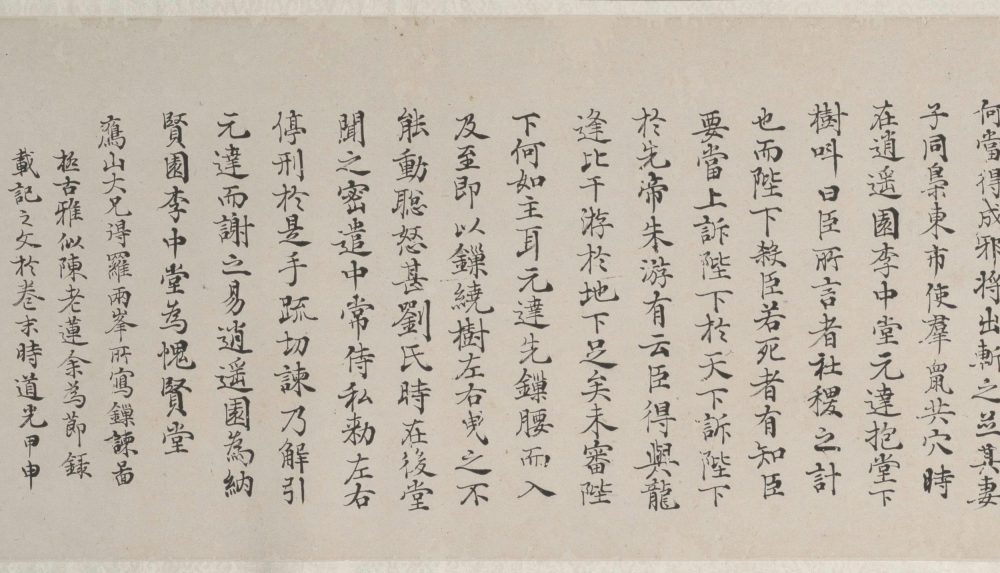 何當得成邪將出斬之並其妻
子同梟東市使羣鼠共穴時
在逍遥園李中堂元達抱堂下
樹叫曰臣所言者社稷之計
也而陛下殺臣若死者有知臣
要當上訴陛下於天下訴陛下
於先帝朱游有云臣得與龍
逢比干游於地下足矣未審陛
下何如主耳元達先鏁腰而入
及至即以鏁繞樹左右曳之不
能動聡怒甚劉氏時在後堂
聞之密遣中常侍私勑左右
停刑於是手疏切諫乃解引
元達而謝之易逍遥園為納
賢園李中堂為愧賢堂
鷹山大兄得羅兩峯所寫鏁諫啚
極古雅似陳老蓮余為節錄
載記之文於卷末時道光甲申